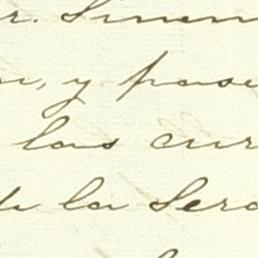 r. Simen
y pase
las cur
de la Sere